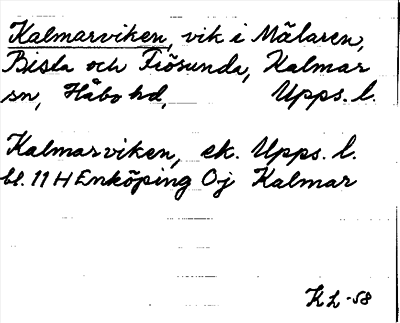 Kalmarviken, vik i Mälaren,
Biskа och Fiösunda, Kalmar
sn, Håbo hd, Upps. l.
Kalmarviken, ek. Upps. l.
bl. 11 H Enköping Oj Kalmar
KL-58